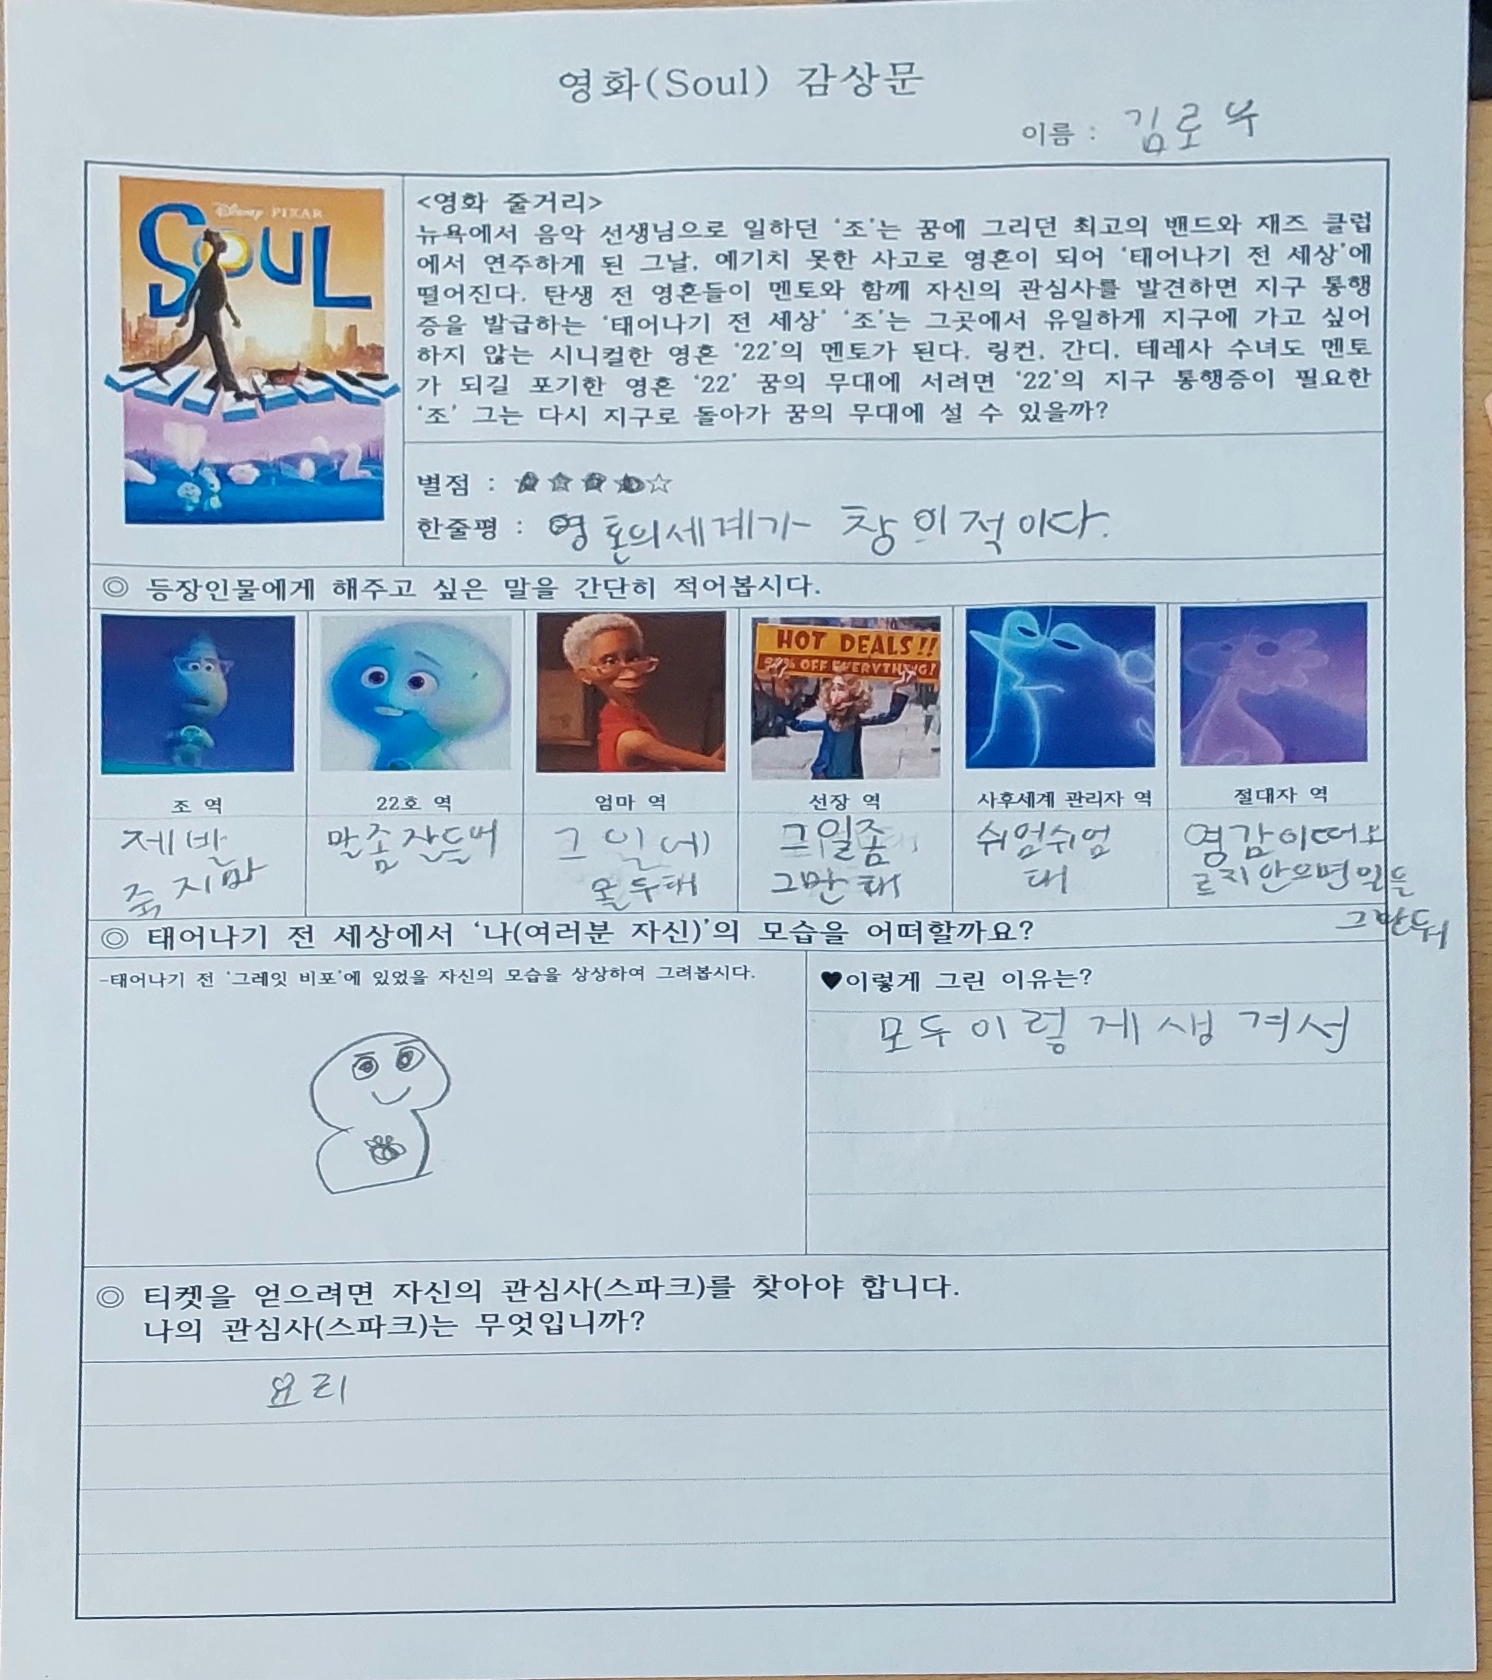 영화(Soul) 감상문
이름 : 김로우
Disney PIXAR
SOUL
<영화 줄거리>
뉴욕에서 음악 선생님으로 일하던 ‘조’는 꿈에 그리던 최고의 밴드와 재즈 클럽
에서 연주하게 된 그날, 예기치 못한 사고로 영혼이 되어 ‘태어나기 전 세상’에
떨어진다. 탄생 전 영혼들이 멘토와 함께 자신의 관심사를 발견하면 지구 통행
증을 발급하는 ‘태어나기 전 세상’ ‘조’는 그곳에서 유일하게 지구에 가고 싶어
하지 않는 시니컬한 영혼 ‘22’의 멘토가 된다. 링컨, 간디, 테레사 수녀도 멘토
가 되길 포기한 영혼 ‘22’ 꿈의 무대에 서려면 ‘22’의 지구 통행증이 필요한
‘조’ 그는 다시 지구로 돌아가 꿈의 무대에 설 수 있을까?
별점 : ★★★★☆
한줄평 : 영혼의세계가 창의적이다.
◎ 등장인물에게 해주고 싶은 말을 간단히 적어봅시다.
HOT DEALS!!
OFF EVERYTHING!
조 역
22호 역
엄마 역
선장 역
사후세계 관리자 역
절대자 역
제발
죽지마
말좀잘들어
그일에
몰두해
그일좀
그만해
쉬엄쉬엄
해
영감이떠오
르지안으면일을
그만둬
◎ 태어나기 전 세상에서 ‘나(여러분 자신)’의 모습을 어떠할까요?
-태어나기 전 ‘그레잇 비포’에 있었을 자신의 모습을 상상하여 그려봅시다.
♥이렇게 그린 이유는?
모두이렇게생겨서
◎ 티켓을 얻으려면 자신의 관심사(스파크)를 찾아야 합니다.
나의 관심사(스파크)는 무엇입니까?
요리